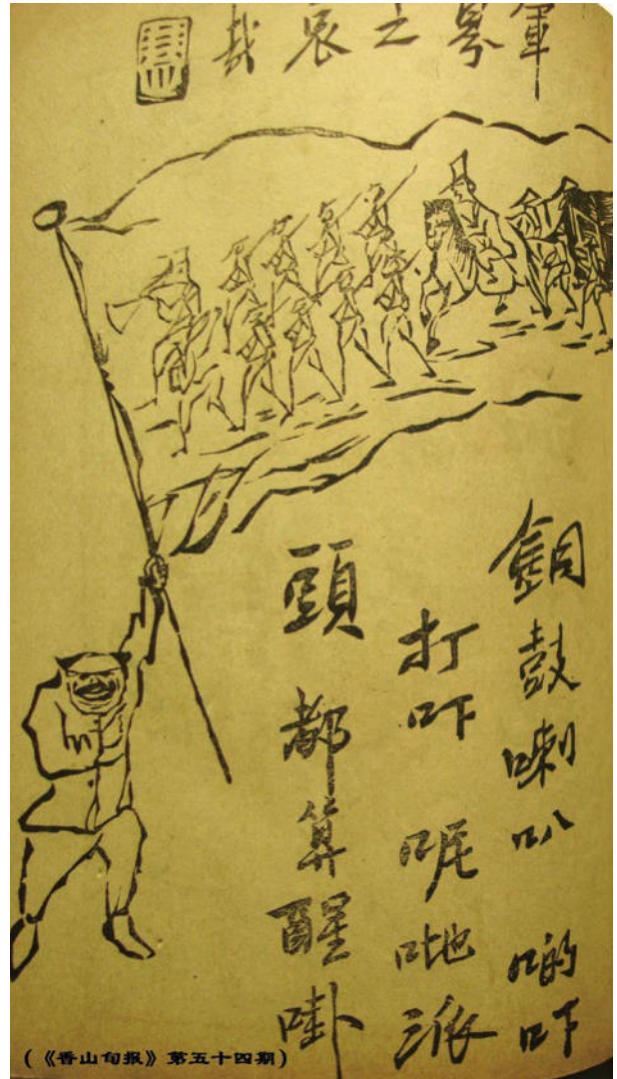 軍界之哀哉
銅鼓喇叭 啲吓
打吓 呢吔派
頭 都算醒啩
(《香山旬报》第五十四期)